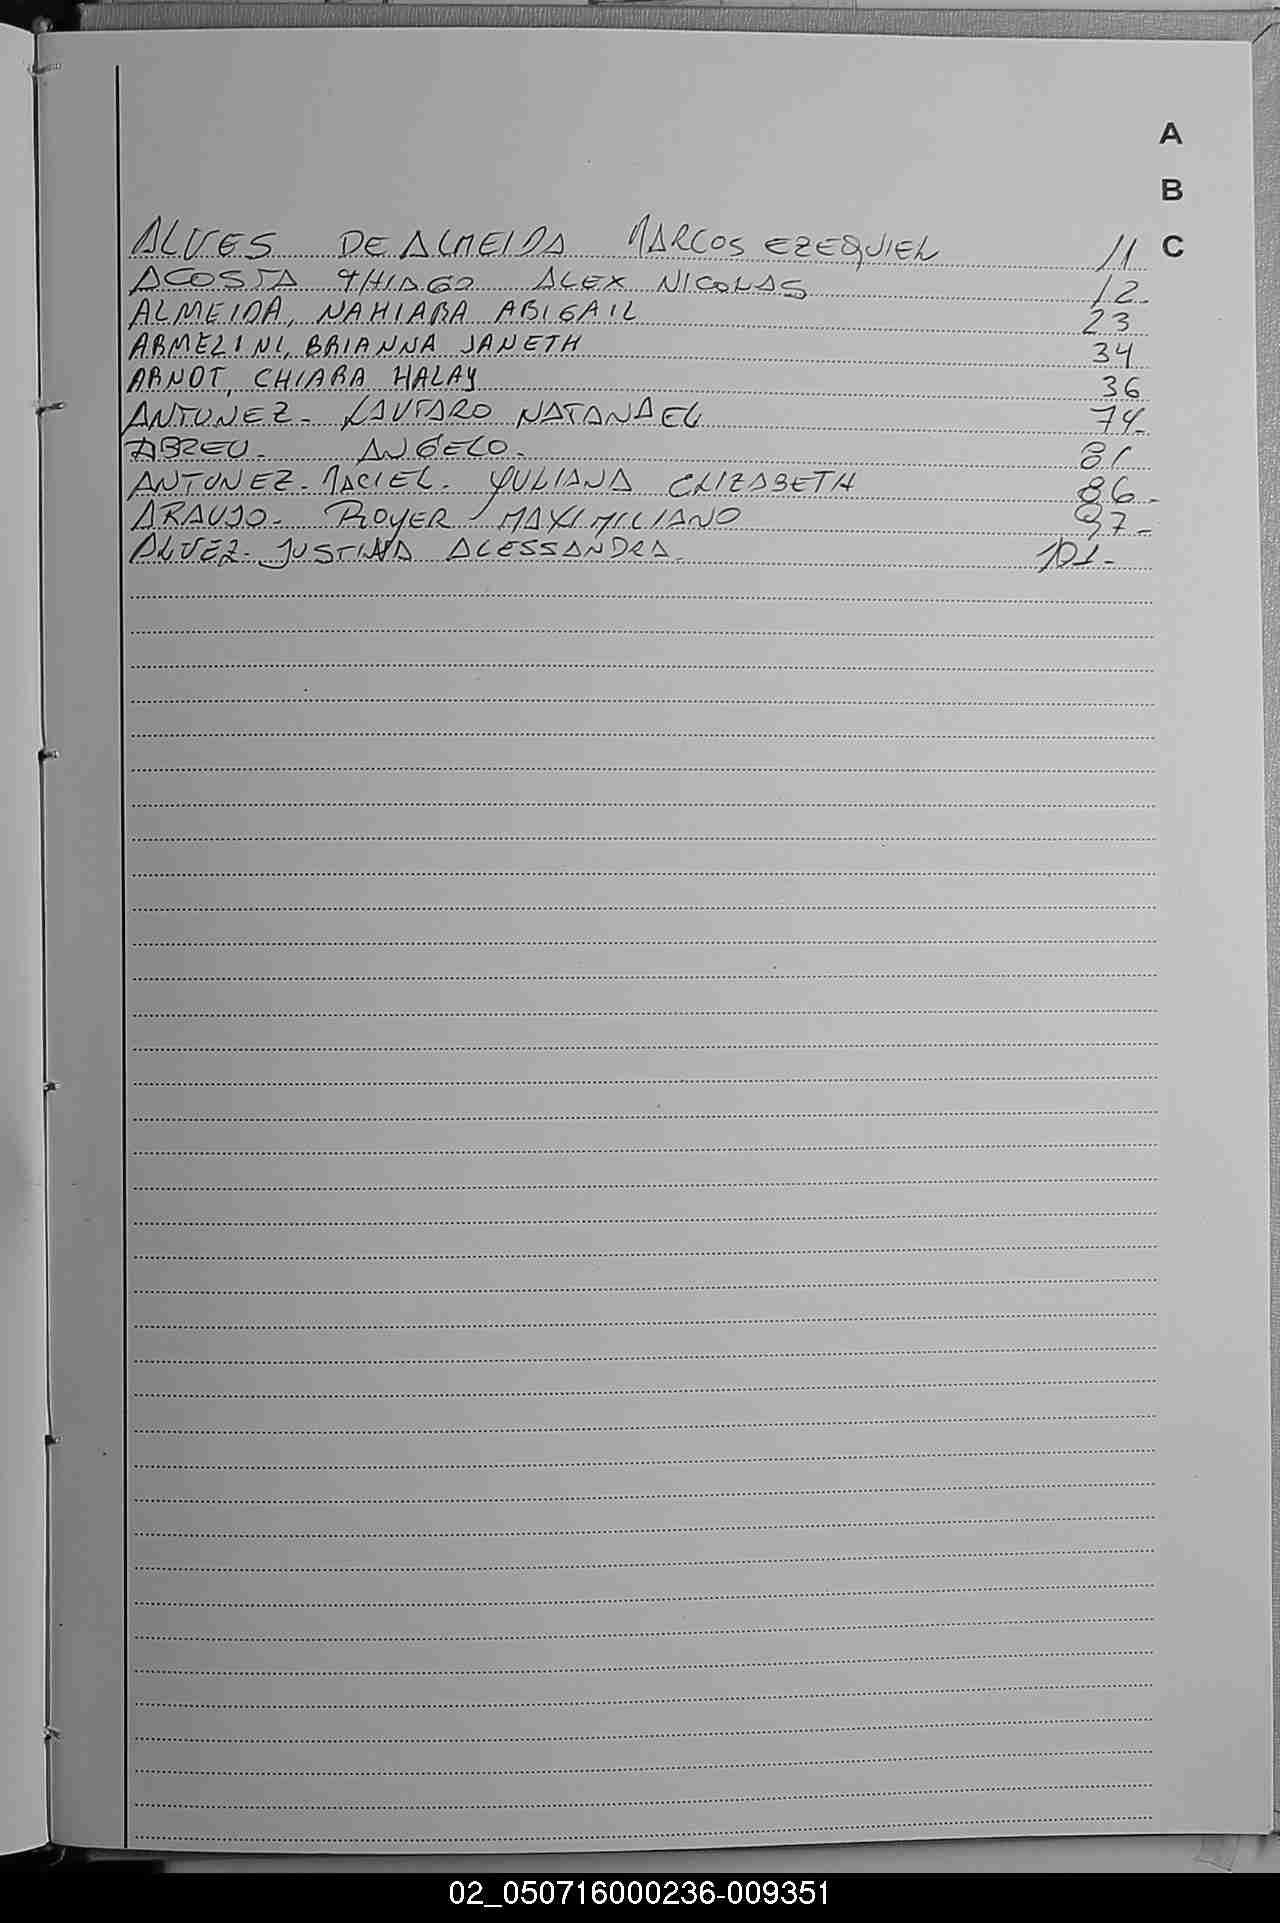 A
B
ALVES DE ALMEIDA MARCOS EZEQUIEL 11 C
ACOSTA THIAGO ALEX NICOLAS 12-
ALMEIDA, NAHIARA ABIGAIL 23
ARMELINI, BRIANNA JANETH 34
ARNOT, CHIARA HALAY 36
ANTUNEZ- LAUTARO NATANAEL 74-
ABREU- ANGELO. 81
ANTUNEZ-MACIEL- YULIANA ELIZABETH 86-
ARAUJO- ROYER MAXIMILIANO 97-
ALVEZ- JUSTINA ALESSANDRA 101-
02_050716000236-009351